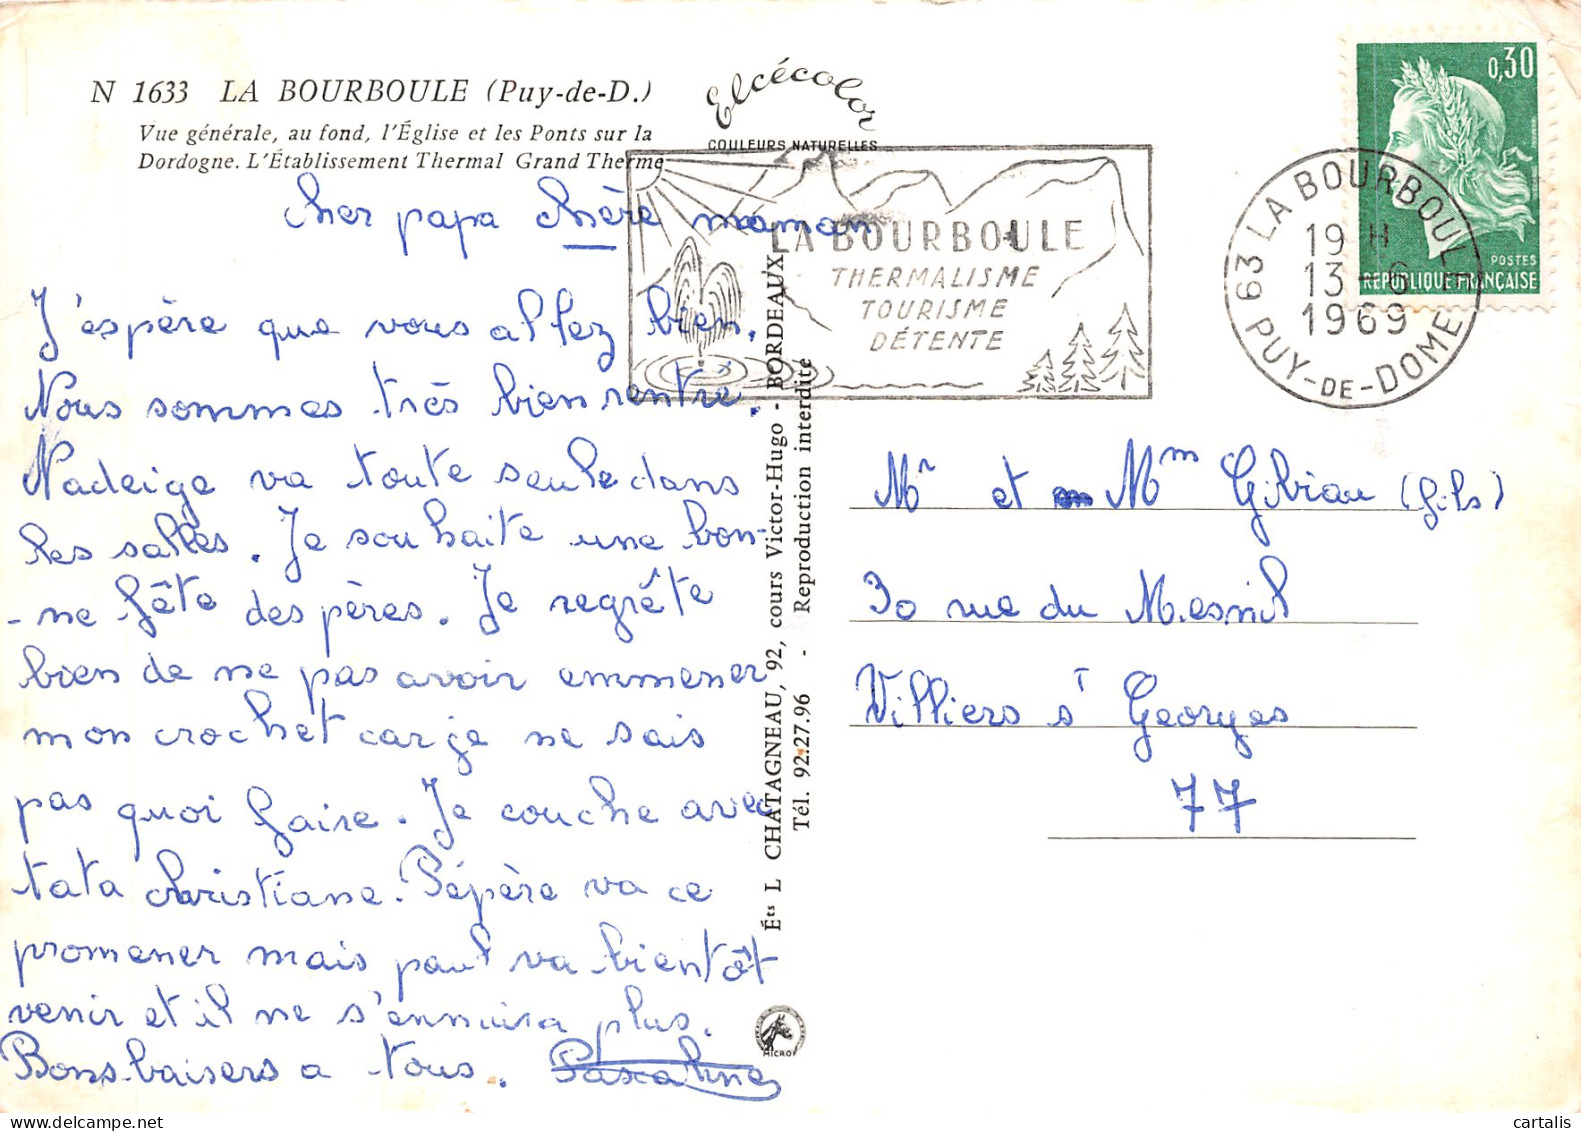 N 1633 LA BOURBOULE (Puy-de-D.)
Vue générale, au fond, l'Église et les Ponts sur la
Dordogne. L'Établissement Thermal Grand Therme
Elcécolor
COULEURS NATURELLES
cher papa chère maman
J'espère que vous allez bien.
Nous sommes très bien rentre.
Nadeige va toute seule dans
les salles. Je souhaite une bon-
-ne fête des pères. Je regrête
bien de ne pas avoir emmener
mon crochet car je ne sais
pas quoi faire. Je couche avec
tata christiane. Pépère va ce
promener mais paul va bientôt
venir et il ne s'ennuira plus.
Bons baisers a tous. Pascaline
LA BOURBOULE
THERMALISME
TOURISME
DÉTENTE
63 LA BOURBOULE
19 H
13 - 6
1969
PUY-DE-DOME
0,30
POSTES
REPUBLIQUE FRANÇAISE
Éts L CHATAGNEAU, 92, cours Victor-Hugo - BORDEAUX
Tél. 92.27.96 - Reproduction interdite
MICROF
Mr et Mm Gibiau (fils)
30 rue du Mesnil
Villiers st Georges
77
cartalis